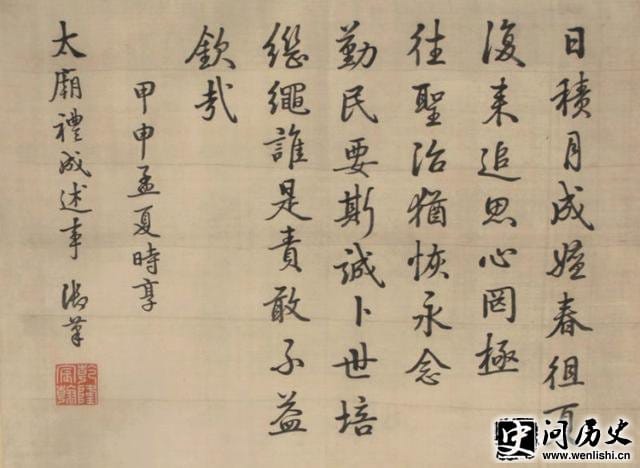 日積月成春徂
復來追思心罔極
往聖治猶恢永念
勤民要斯誠卜世培
繼繩誰是責敢不益
欽哉
甲申孟夏時享
太廟禮成述事 御筆
乾隆宸翰
问历史
www.wenlishi.cn